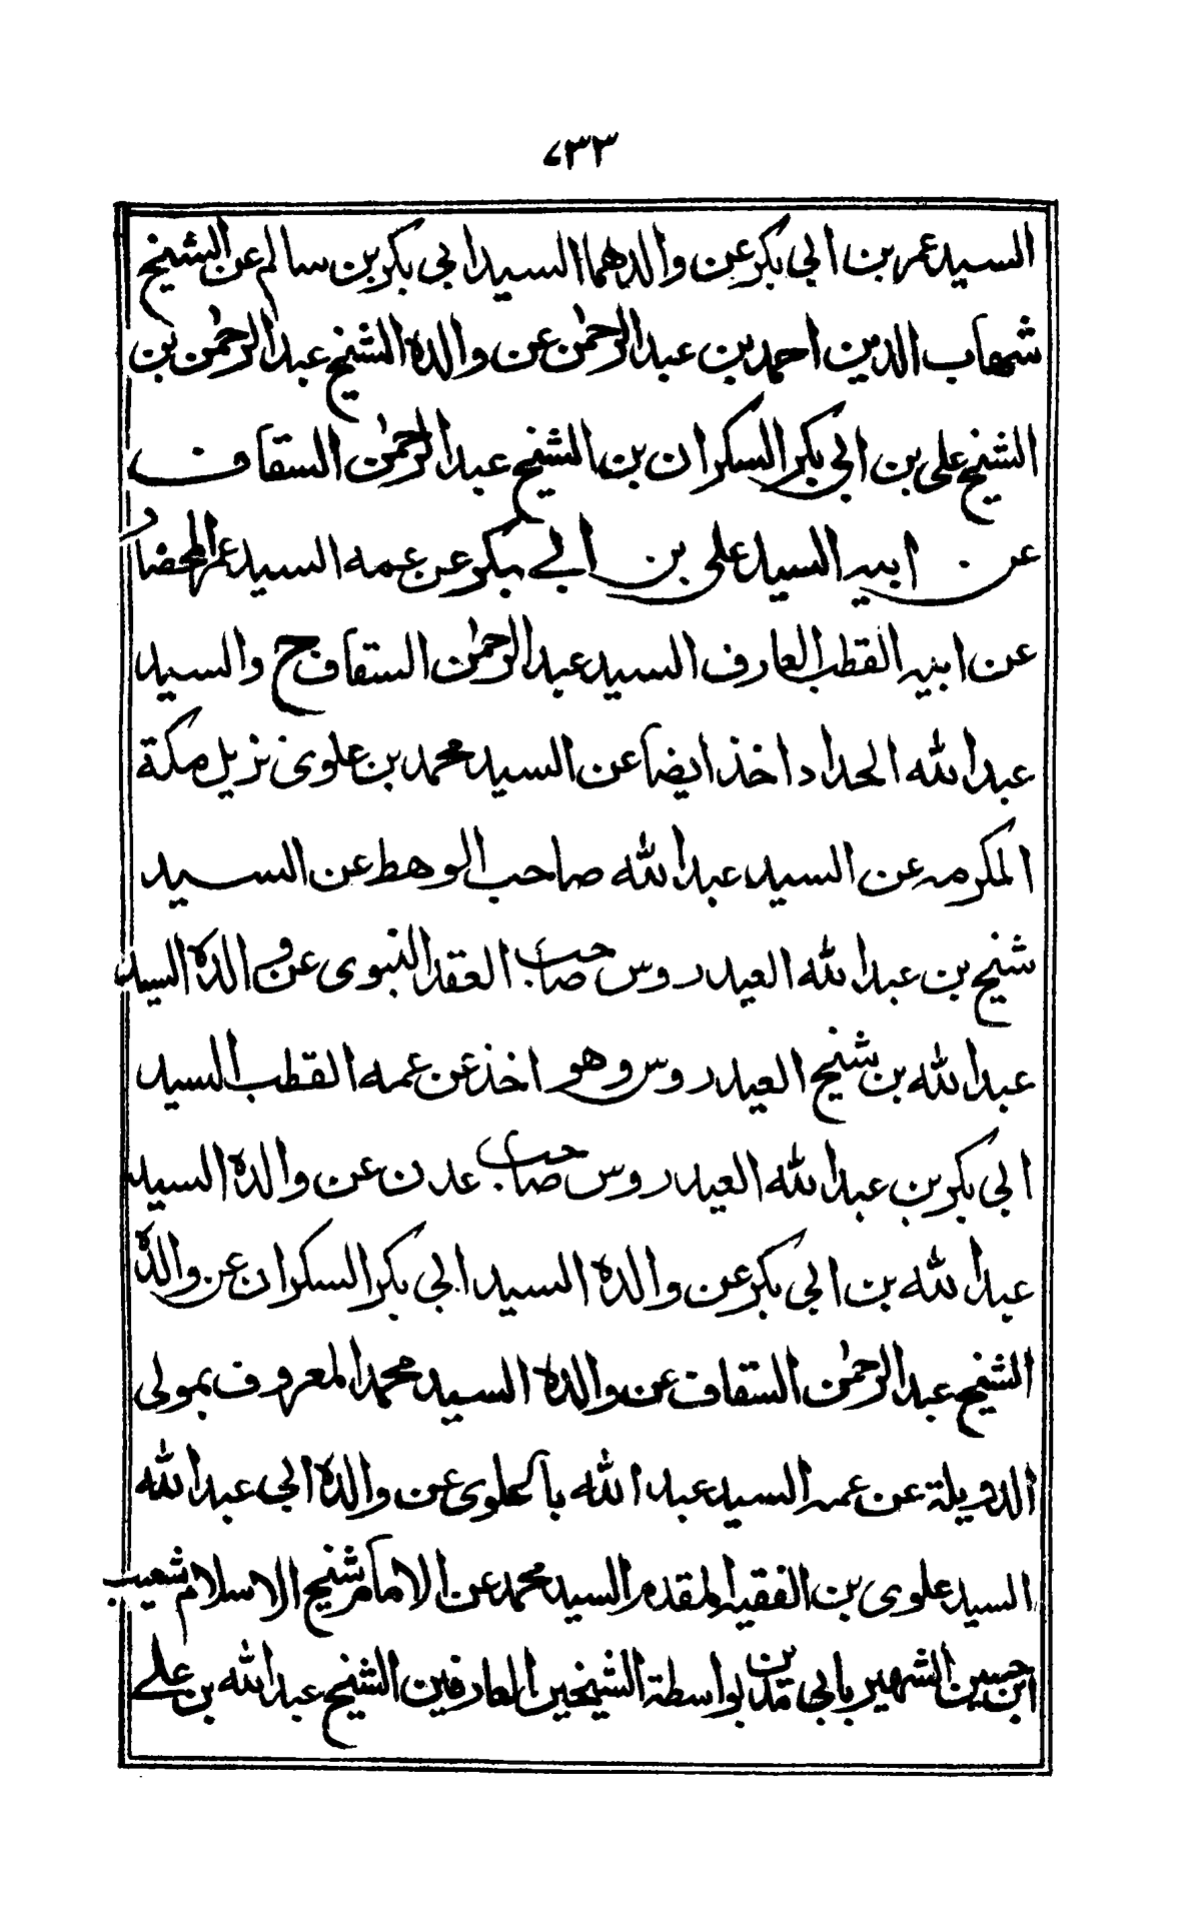 ٧٣٣
السيد عمر بن ابي بكر عن والدهما السيد ابي بكر بن سالم عن الشيخ
شهاب الدين احمد بن عبد الرحمن عن والده الشيخ عبد الرحمن بن
الشيخ على بن ابي بكر السكران بن الشيخ عبد الرحمن السقاف
عن ابيه السيد على بن ابي بكر عن عمه السيد عمر المحضار
عن ابيه القطب العارف السيد عبد الرحمن السقاف ح والسيد
عبد الله الحداد اخذ ايضا عن السيد محمد بن علوى نزيل مكة
المكرمه عن السيد عبد الله صاحب الوهط عن السيد
شيخ بن عبد الله العيدروس صاحب العقد النبوى عن والده السيد
عبد الله بن شيخ العيدروس وهو اخذ عن عمه القطب السيد
ابي بكر بن عبد الله العيدروس صاحب عدن عن والده السيد
عبد الله بن ابي بكر عن والده السيد ابي بكر السكران عن والده
الشيخ عبد الرحمن السقاف عن والده السيد محمد المعروف بمولى
الدويلة عن عمه السيد عبد الله باعلوى عن والده ابي عبد الله
السيد علوى بن الفقيه المقدم السيد محمد عن الامام شيخ الاسلام شعيب
ابن حسين الشهير بابي مدين بواسطة الشيخين العارفين الشيخ عبد الله بن على